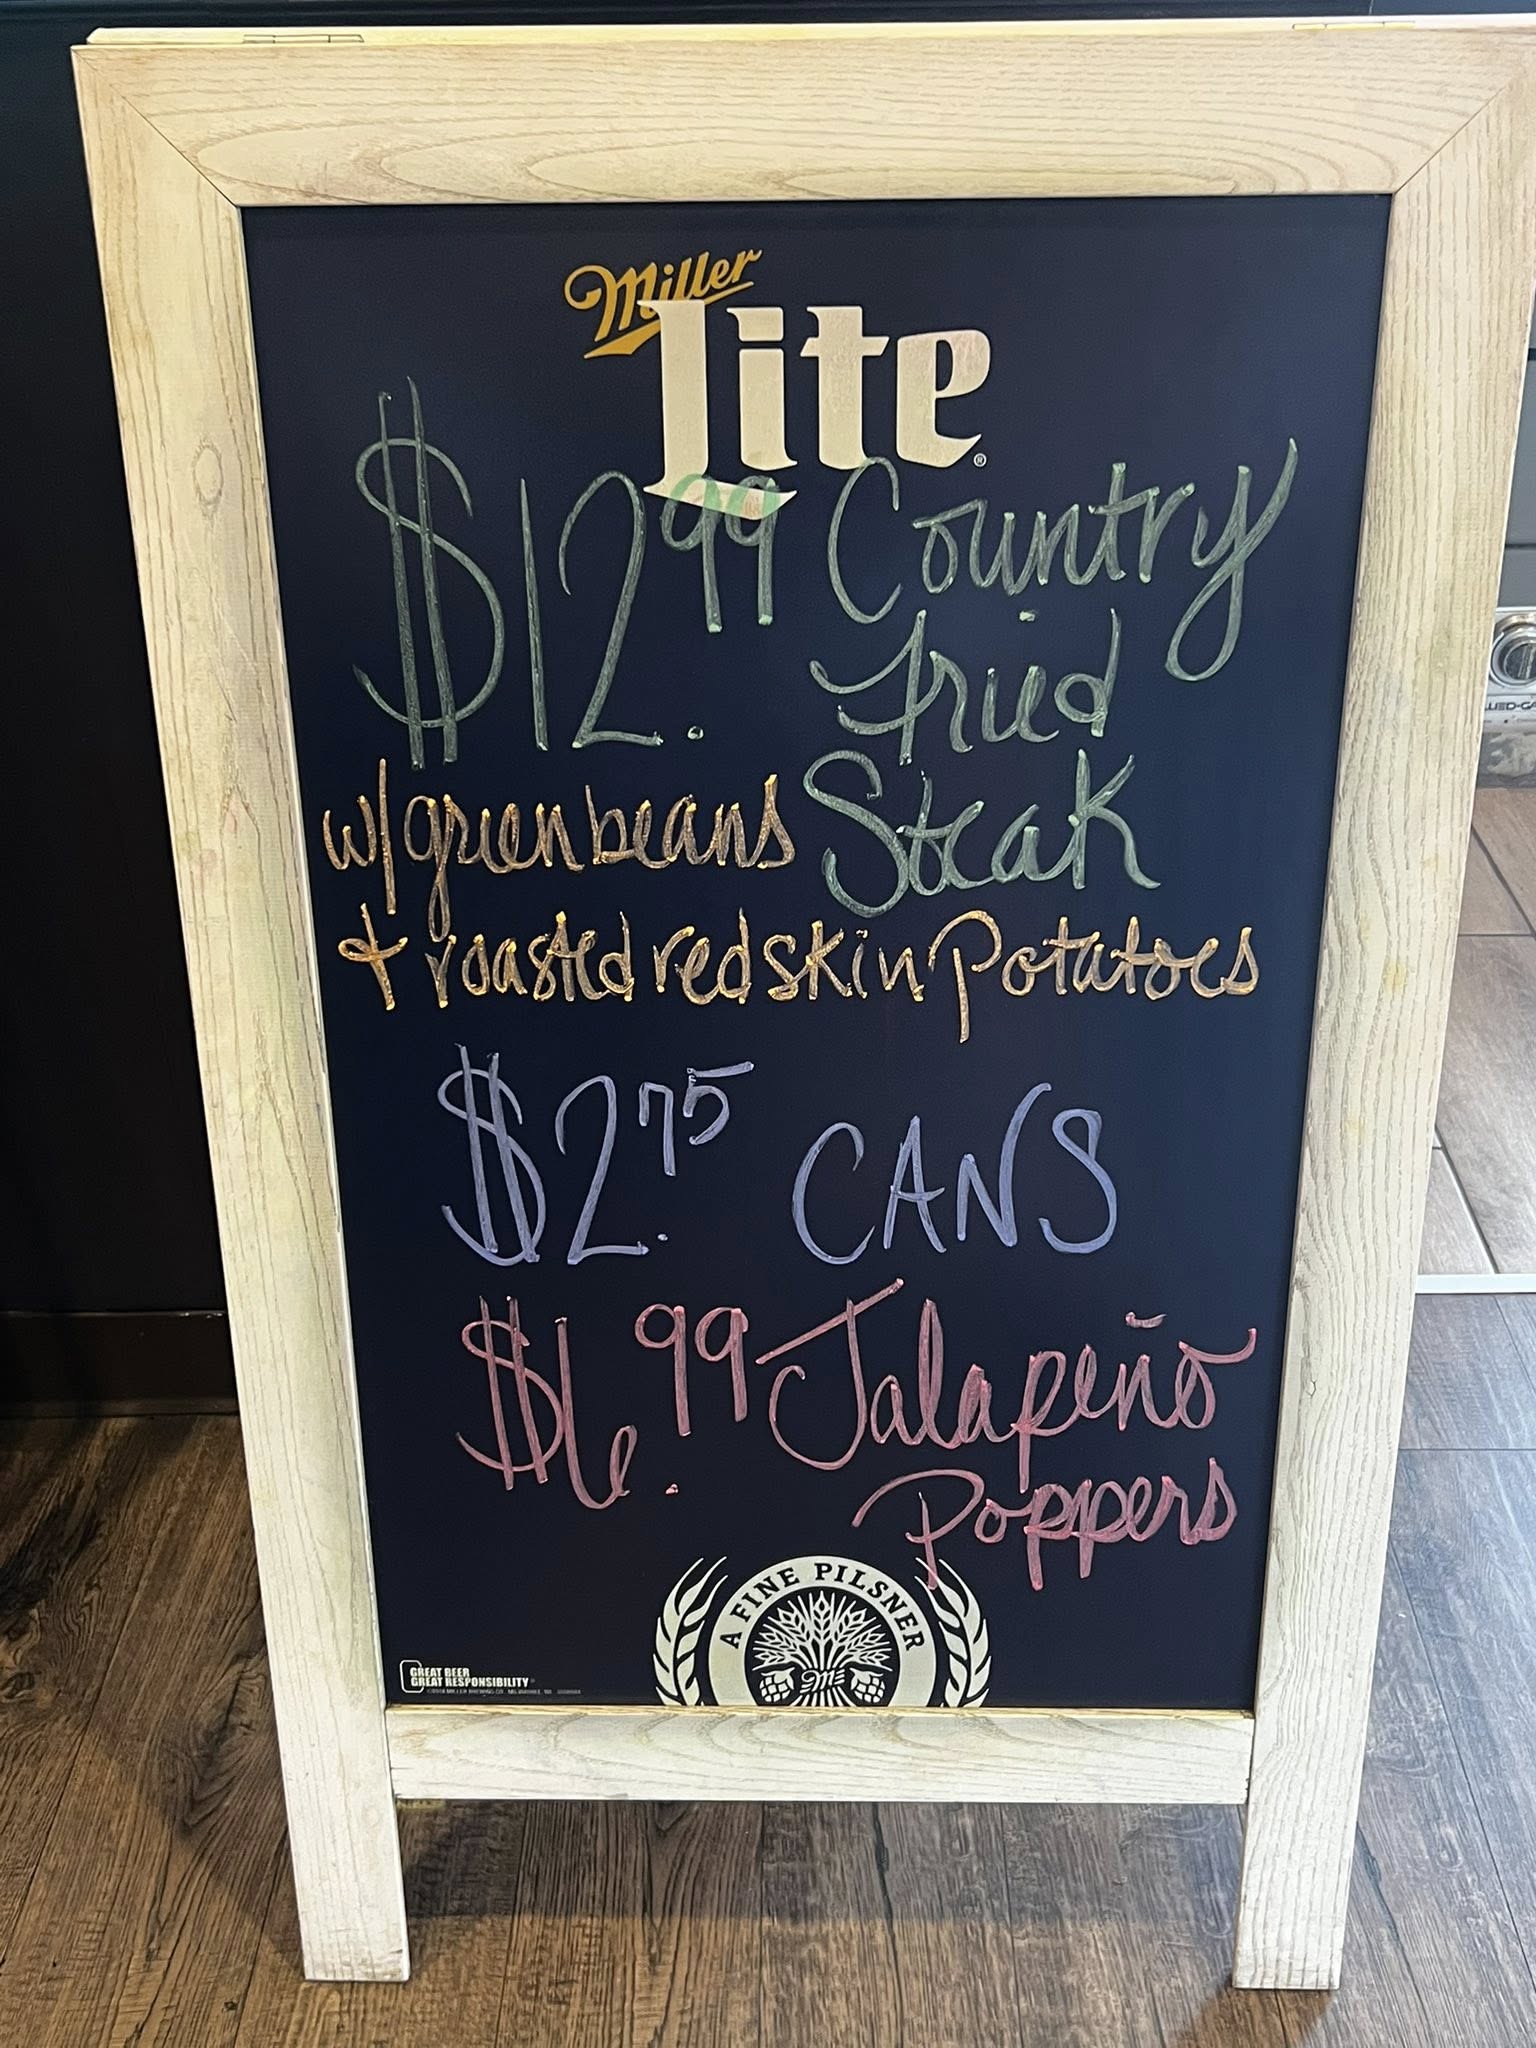 Miller
Lite
$12.99 Country
Fried
Steak
w/green beans
& roasted redskin Potatoes
$2.75 CANS
$6.99 Jalapeño
Poppers
A FINE PILSNER
GREAT BEER
GREAT RESPONSIBILITY